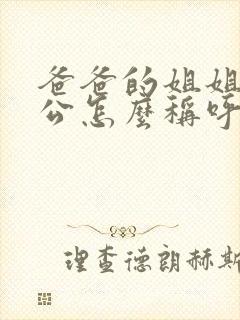 爸爸的姐姐
公怎麼稱呼
理查德朗赫斯